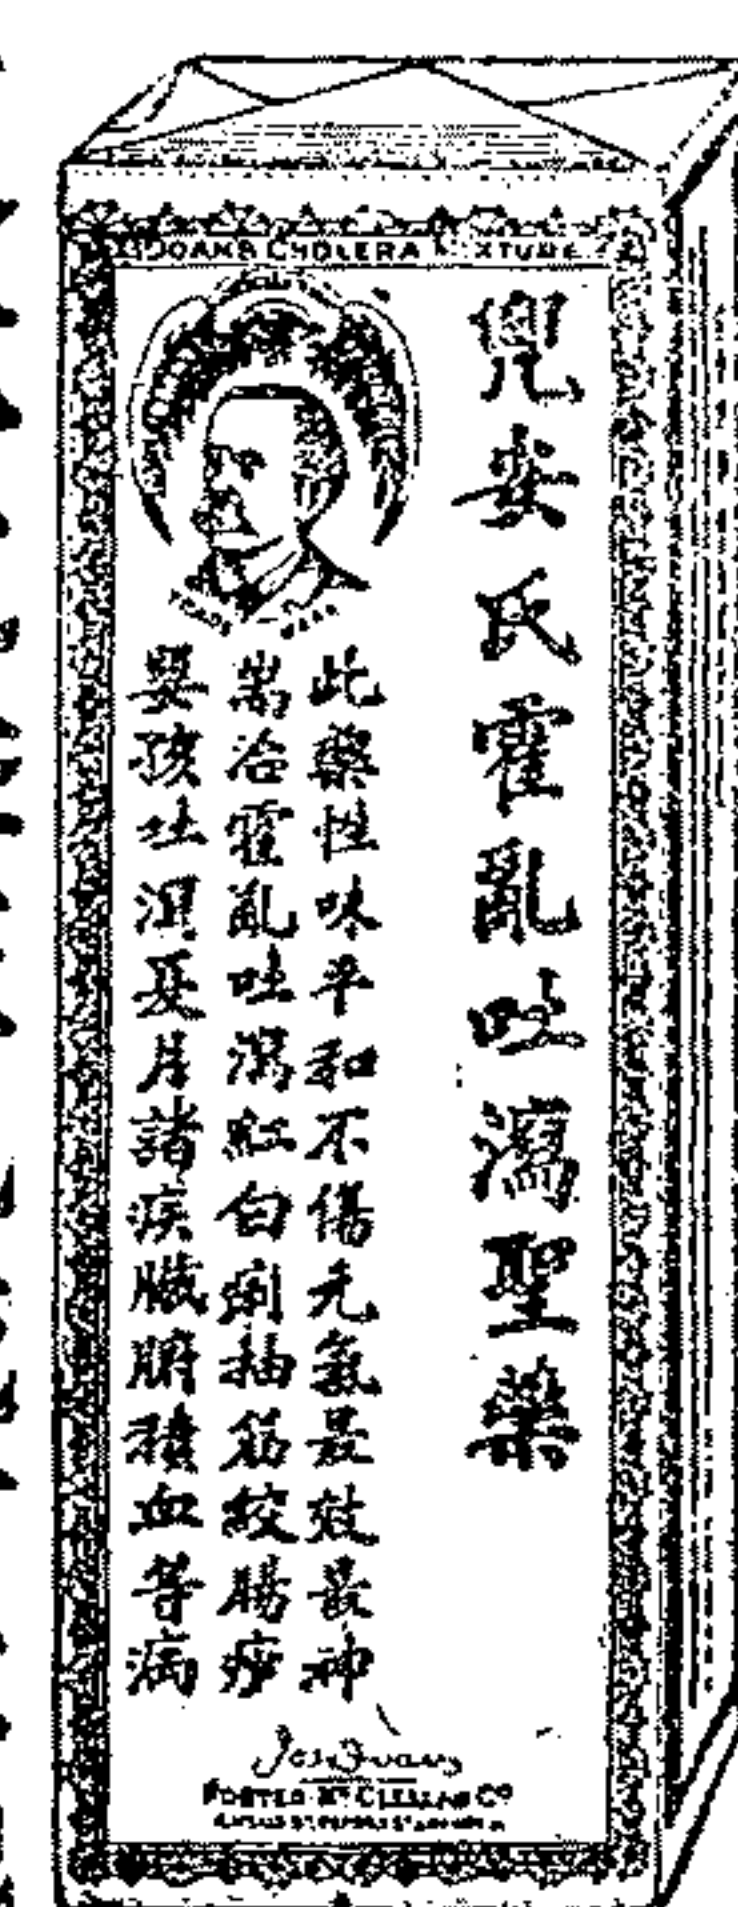 DOAN'S CHOLERA MIXTURE
兜安氏霍亂吐瀉聖藥
此藥性味平和不傷元氣最效最神
耑治霍亂吐瀉紅白痢抽筋絞腸痧
嬰孩吐瀉夏月諸疾臟腑積血等病
TRADE MARK
FOSTER McCLELLAN Co